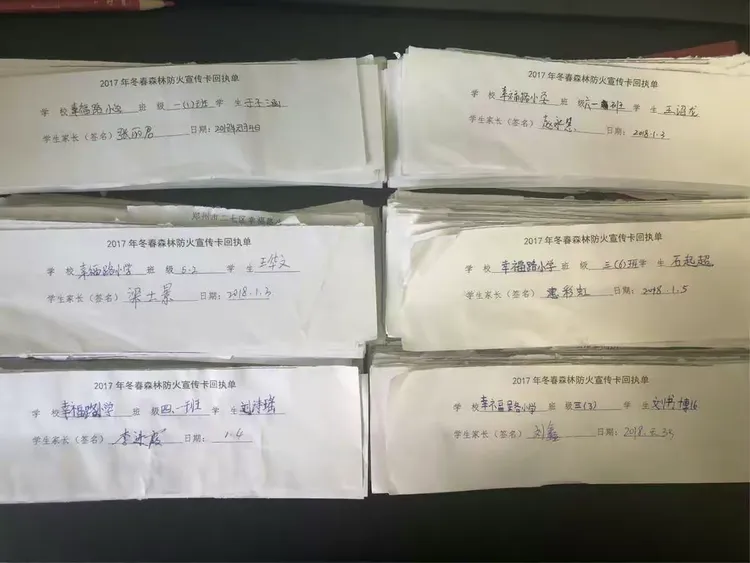 2017年冬春森林防火宣传卡回执单
学 校 幸福路小学 班 级 一(1)班 学 生
学生家长(签名) 张丽君 日期:
2017年冬春森林防火宣传卡回执单
学 校 幸福路小学 班 级 六一班 学 生 王诏龙
学生家长(签名) 日期: 2018.1.3
郑州市二七区幸福路小
2017年冬春森林防火宣传卡回执单
学 校 幸福路小学 班 级 5.2 学 生 王华文
学生家长(签名) 梁士景 日期: 2018.1.3
2017年冬春森林防火宣传卡回执单
学 校 幸福路小学 班 级 三(6)班 学 生 石起超
学生家长(签名) 惠彩虹 日期: 2018.1.5
2017年冬春森林防火宣传卡回执单
学 校 幸福路小学 班 级 四.一班 学 生
学生家长(签名) 李冰霞 日期: 1.4
2017年冬春森林防火宣传卡回执单
学 校 幸福路小学 班 级 三(3) 学 生 刘书博
学生家长(签名) 刘鑫 日期: 2018.